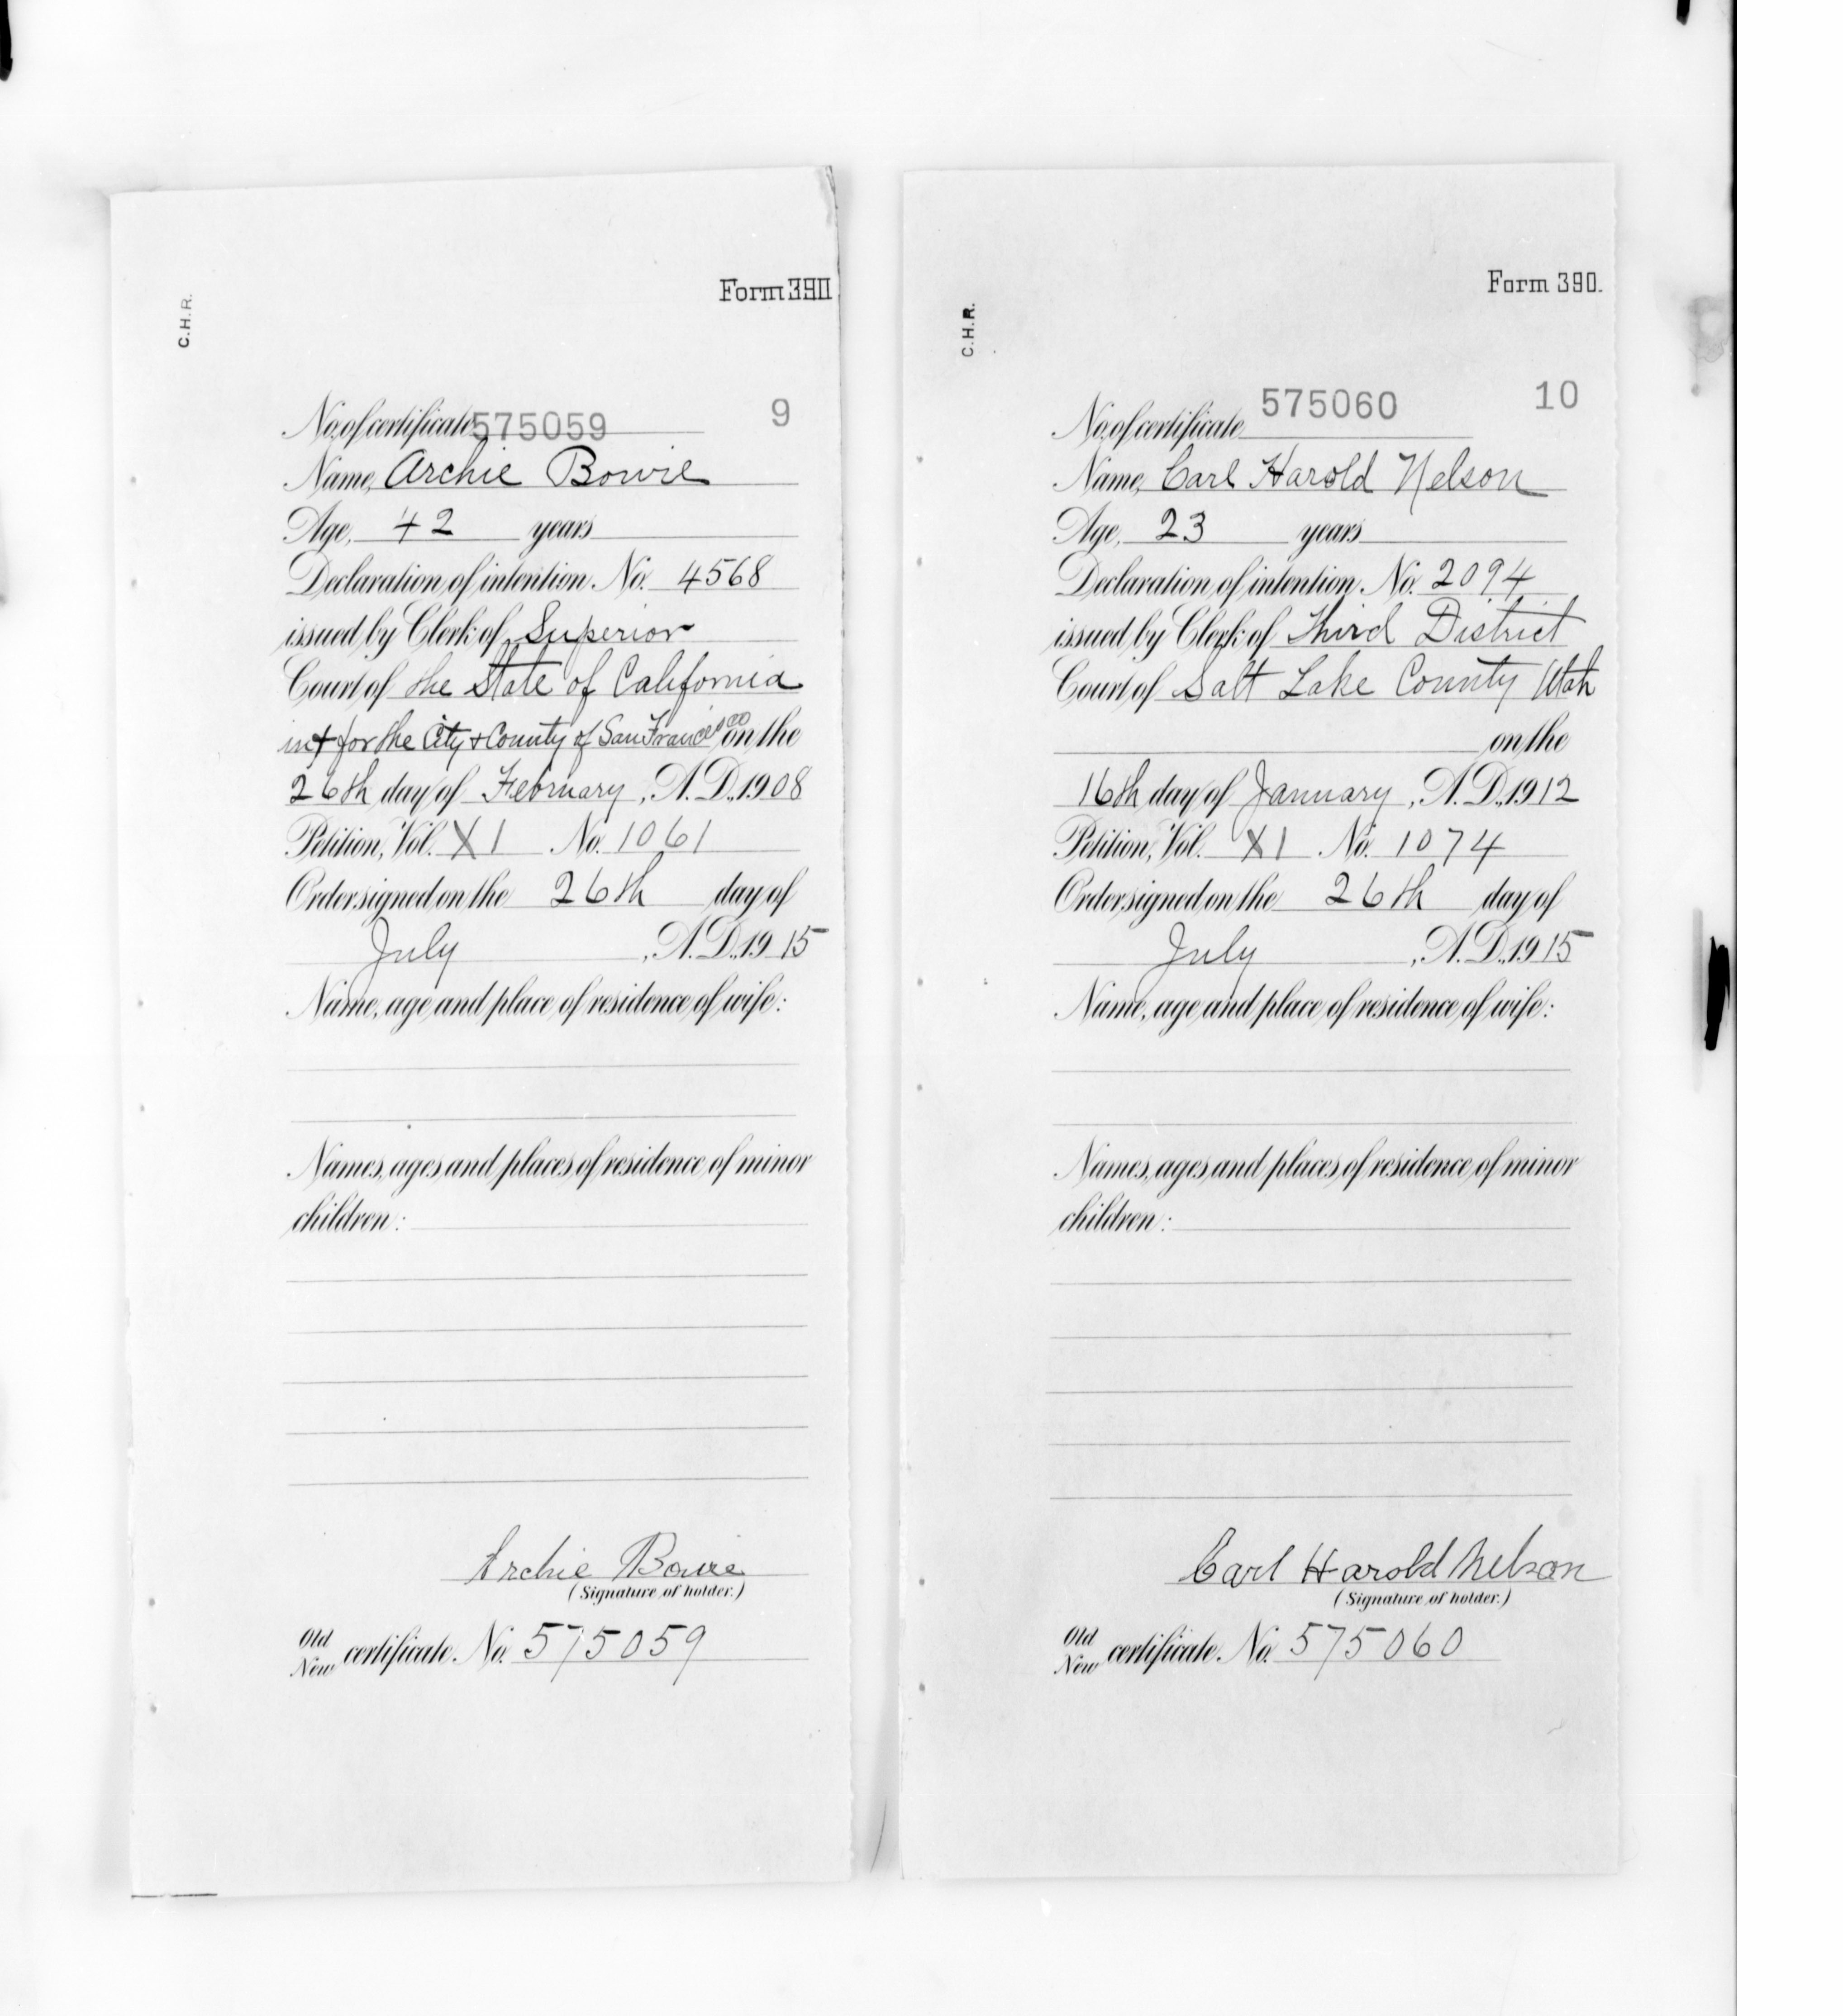 C.H.R.
Form 390
No. of certificate 575059 9
Name, Archie Bowie
Age, 42 years
Declaration of intention No. 4568
issued by Clerk of Superior
Court of the State of California
in + for the City + County of San Francisco on the
26th day of February, A.D. 1908
Petition, Vol. XI No. 1061
Order signed on the 26th day of
July, A.D. 1915
Name, age and place of residence of wife:
Names, ages and places of residence of minor
children:
Archie Bowie
(Signature of holder.)
Old
New certificate No. 575059
C.H.R.
Form 390.
No. of certificate 575060 10
Name, Carl Harold Nelson
Age, 23 years
Declaration of intention No. 2094
issued by Clerk of Third District
Court of Salt Lake County Utah
on the
16th day of January, A.D. 1912
Petition, Vol. XI No. 1074
Order signed on the 26th day of
July, A.D. 1915
Name, age and place of residence of wife:
Names, ages and places of residence of minor
children:
Carl Harold Nelson
(Signature of holder.)
Old
New certificate No. 575060